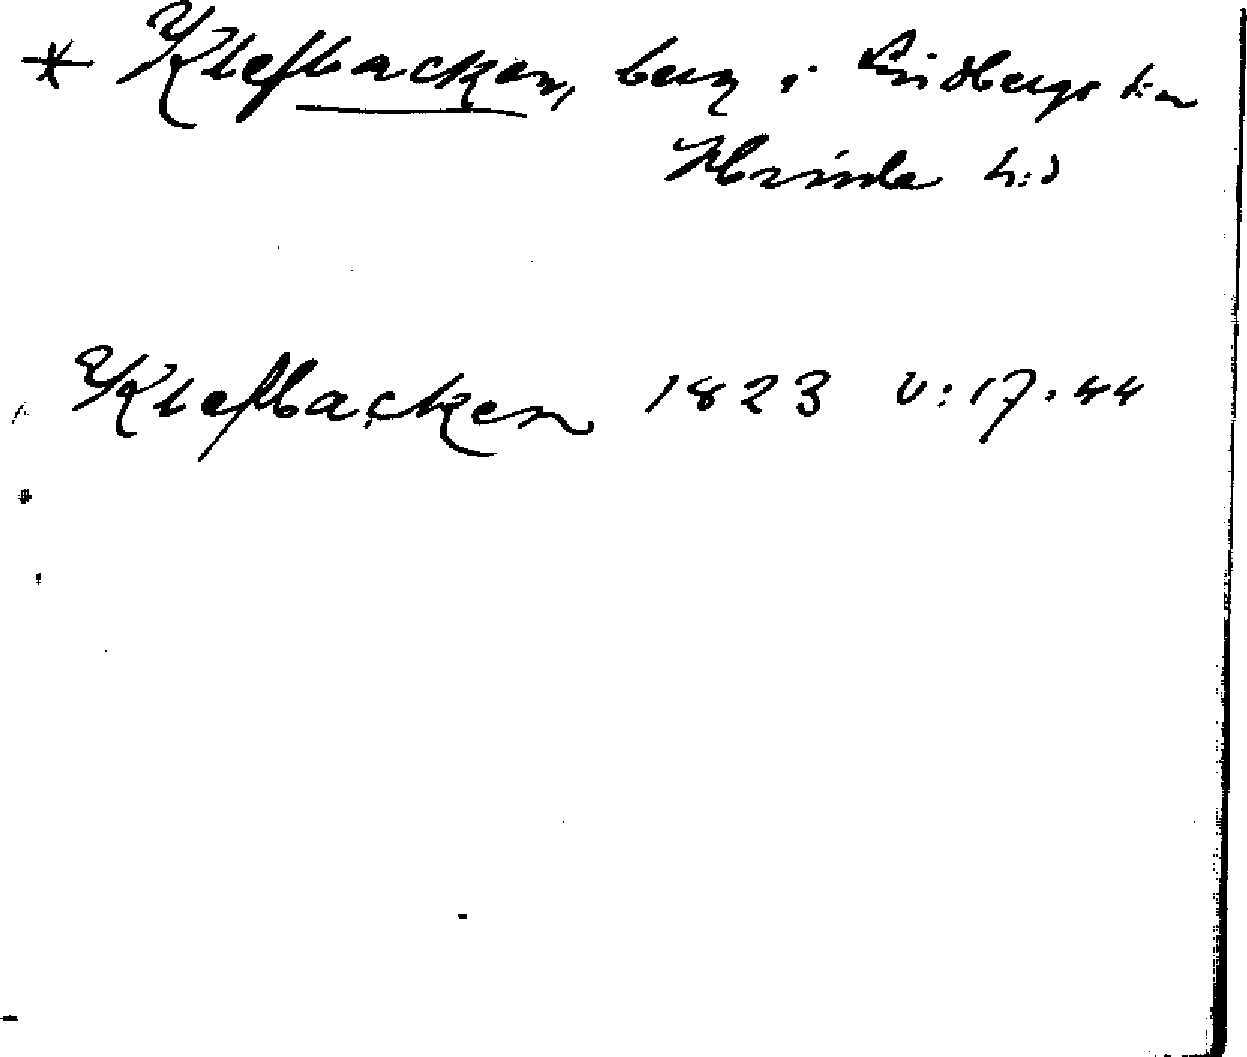 * Klefbacken, berg i Lidbergs hn
Kinda h:d
Klefbacken 1823 U:17.44